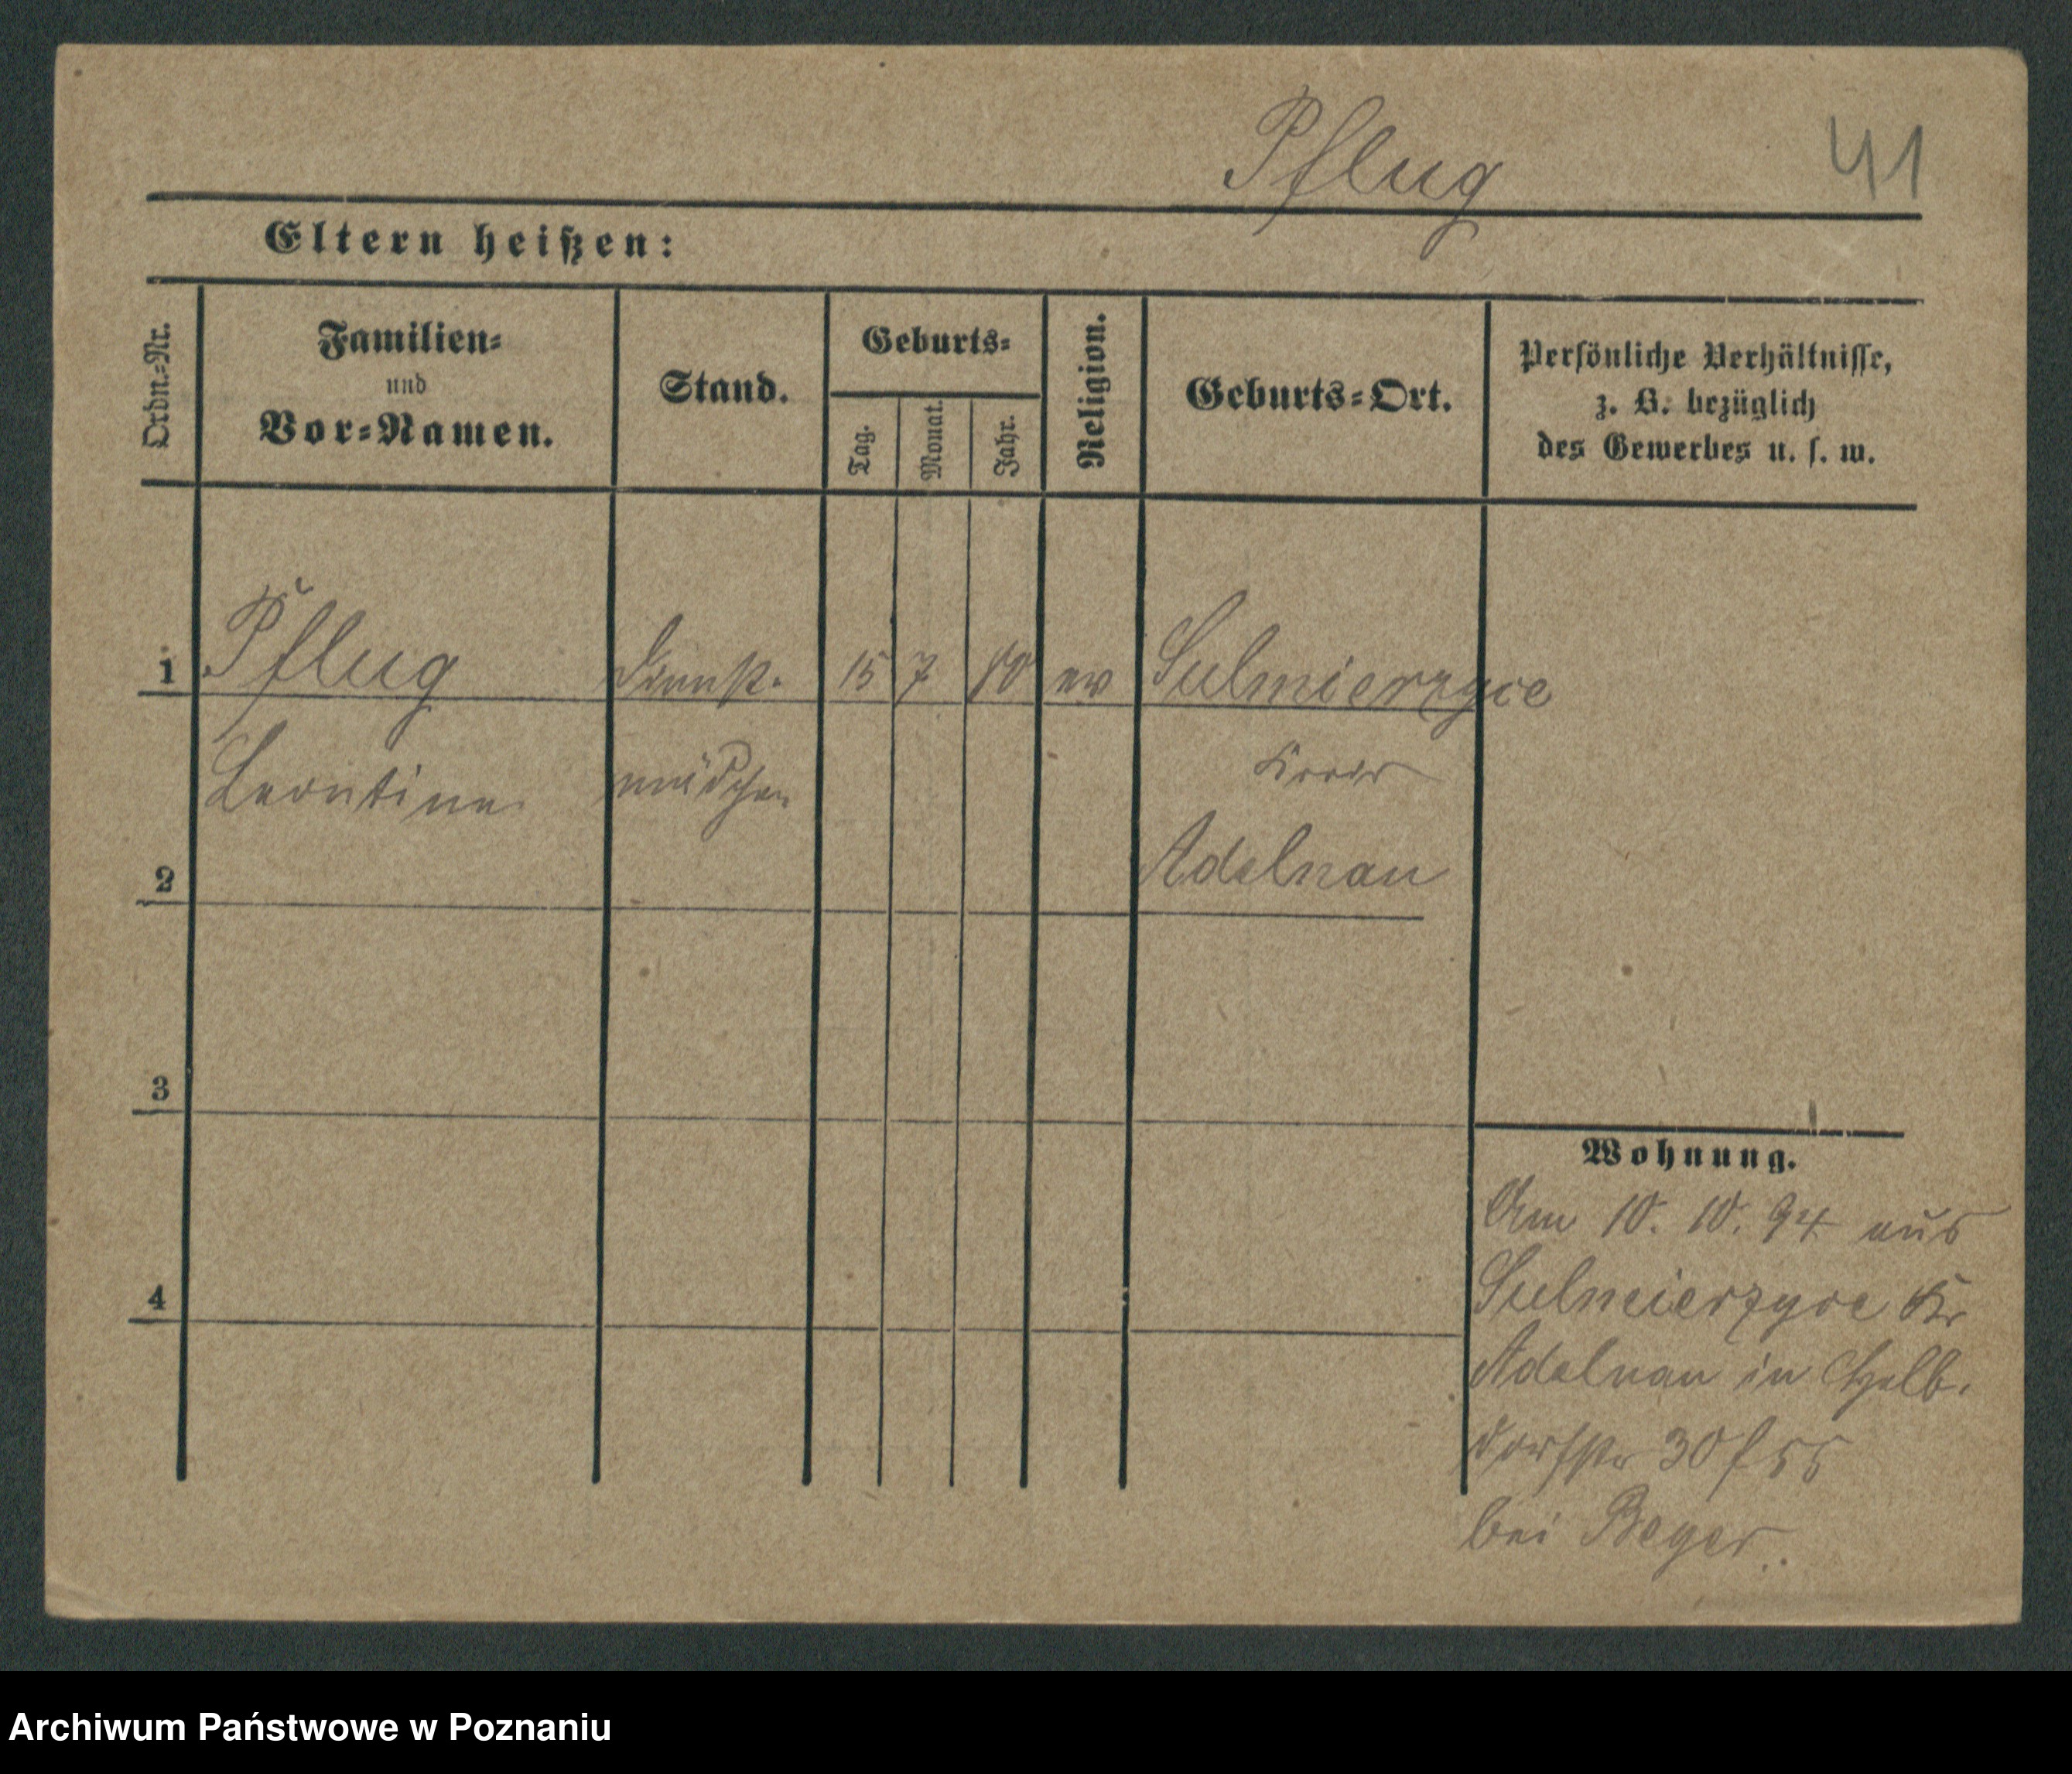 Pflug
41
Eltern heißen:
Ordn.=Nr.
Familien=
und
Vor=Namen.
Stand.
Geburts=
Tag.
Monat.
Jahr.
Religion.
Geburts=Ort.
Persönliche Verhältnisse,
z. B. bezüglich
des Gewerbes u. s. w.
1 Pflug Dienst. 15 7 80 ev Sulmierzyce
Leontine mädchen Kreis
Adelnau
2
3
4
Wohnung.
Am 10. 10. 94 aus
Sulmierzyce Kr
Adelnau in
dorfstr 30
bei Beyer.
Archiwum Państwowe w Poznaniu